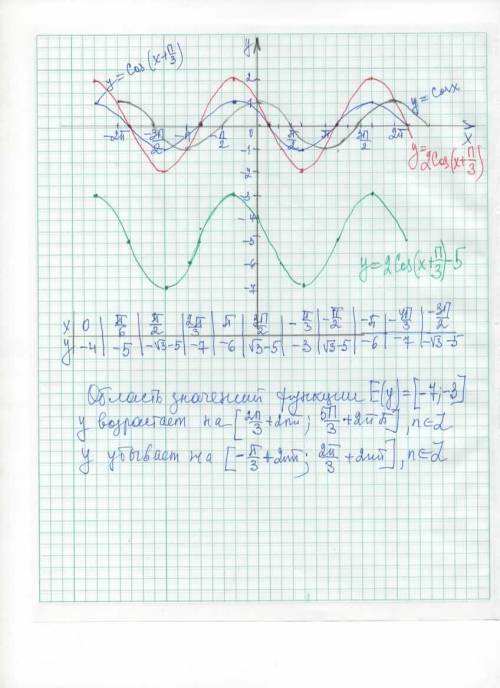 y=cos(x+π/3)
y
y=cosx
2
1
-2π -3π/2 -π -π/2 0 π/2 π 3π/2 2π x
-1
-2
-3
-4
-5
-6
-7
y=2cos(x+π/3)
y=2cos(x+π/3)-5
x 0 | π/6 | π/2 | 2π/3 | π | 3π/2 | -π/3 | -π/2 | -π | -4π/3 | -3π/2
y -4 | -5 | -√3-5 | -7 | -6 | √3-5 | -3 | √3-5 | -6 | -7 | -√3-5
Область значений функции E(y)=[-7;-3]
у возрастает на [2π/3+2πn; 5π/3+2πn], n∈Z
у убывает на [-π/3+2πn; 2π/3+2πn], n∈Z